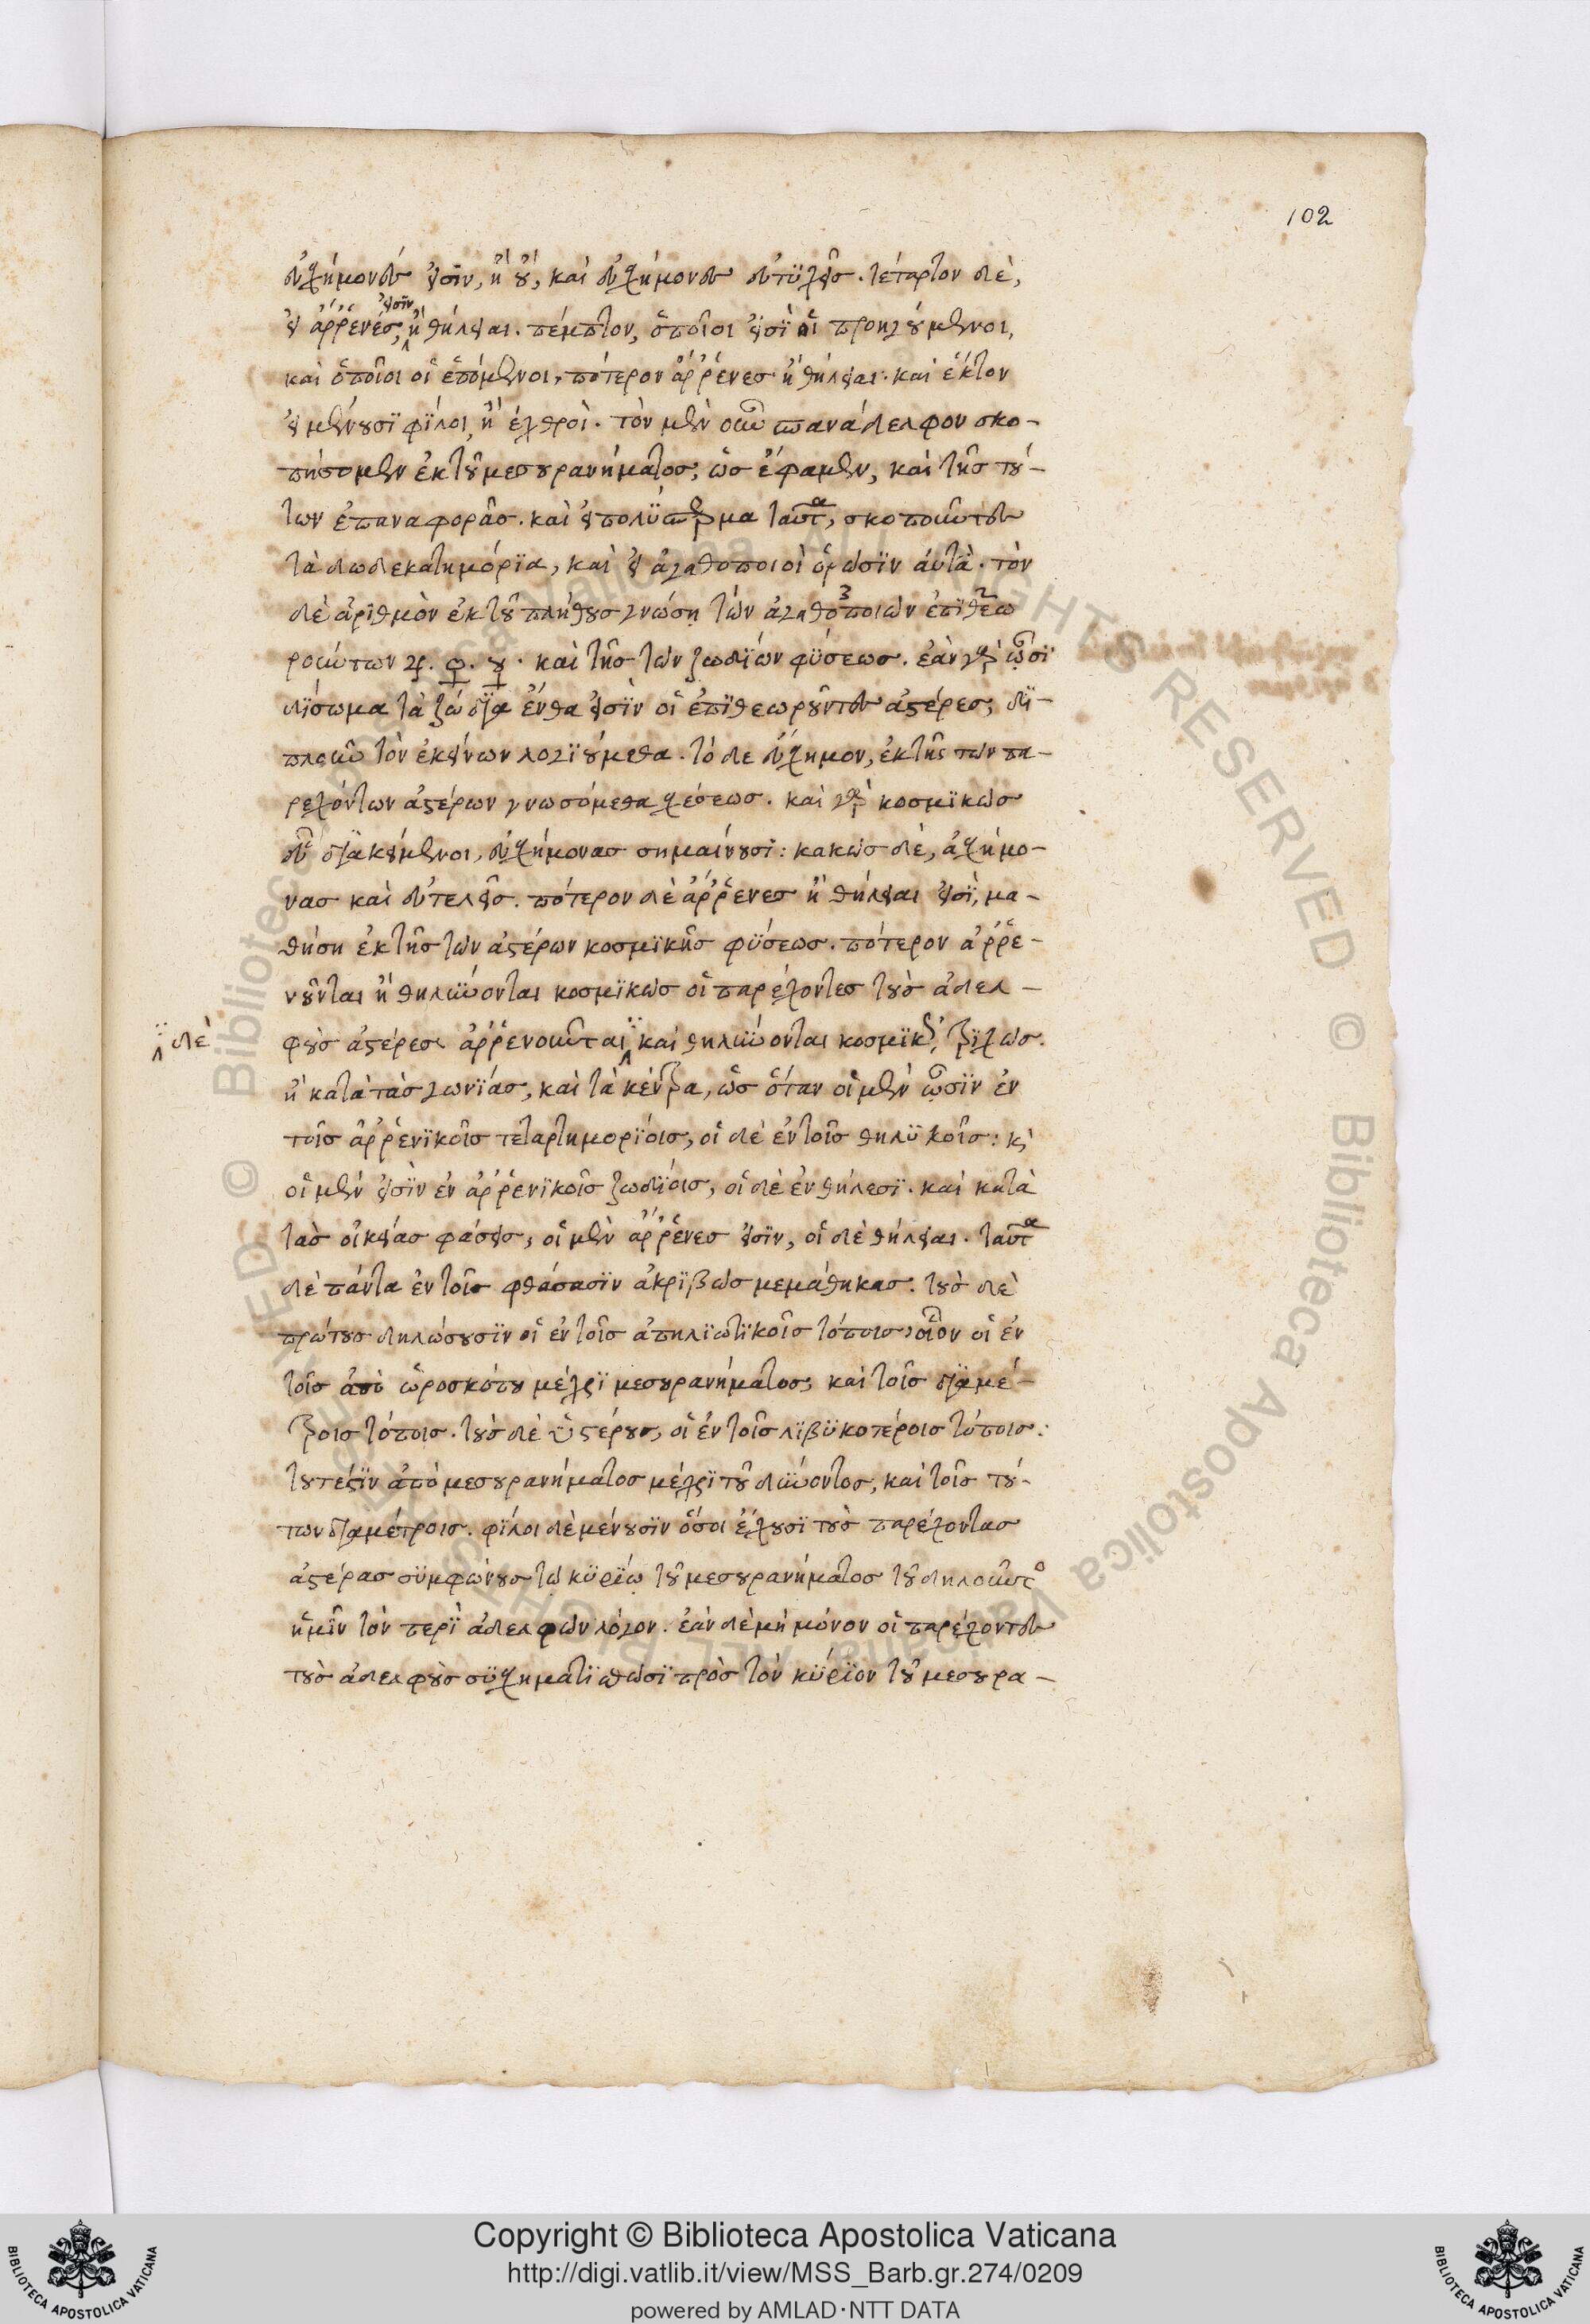 102
εὐσχήμονες εἰσὶν, ἢ οὔ, καὶ εὐσχήμονες εὐτυχεῖς. τέταρτον δὲ,
εἰ ἄρρενες εἰσὶν, ἢ θήλειαι. πέμπτον, ὁποῖοι εἰσὶ οἱ προηγούμενοι,
καὶ ὁποῖοι οἱ ἑπόμενοι, πότερον ἄρρενες ἢ θήλειαι. καὶ ἕκτον
εἰ μένουσι φίλοι, ἢ ἐχθροὶ. τὸν μὲν οὖν πανάδελφον σκο-
πήσομεν ἐκ τοῦ μεσουρανήματος, ὡς ἔφαμεν, καὶ τῆς τού-
των ἐπαναφορᾶς. καὶ εἰ πολύσπερμα ταῦτα, σκοποῦντες
τὰ δωδεκατημόρια, καὶ εἰ ἀγαθοποιοὶ ὁρῶσιν αὐτὰ. τὸν
δὲ ἀριθμὸν ἐκ τοῦ πλήθους γνώσῃ τῶν ἀγαθοποιῶν ἐπιθεω
ρούντων ♃. ♀. ☿. καὶ τῆς τῶν ζωδίων φύσεως. ἐὰν γὰρ ὦσι
δίσωμα τὰ ζώδια ἔνθα εἰσὶν οἱ ἐπιθεωροῦντες ἀστέρες, δι-
πλοῦν τὸν ἐκείνων λογιούμεθα. τὸ δε εὔσχημον, ἐκ τῆς τῶν πα-
ρεχόντων ἀστέρων γνωσόμεθα σχέσεως. καὶ γὰρ κοσμικῶς
εὖ διακείμενοι, εὐσχήμονας σημαίνουσι: κακῶς δὲ, ἀσχήμο-
νας καὶ εὐτελεῖς. πότερον δὲ ἄρρενες ἢ θήλειαι εἰσὶ, μα-
θήσῃ ἐκ τῆς τῶν ἀστέρων κοσμικῆς φύσεως. πότερον ἀρρε-
νοῦνται ἢ θηλύνονται κοσμικῶς οἱ παρέχοντες τοὺς ἀδελ-
φοὺς ἀστέρες. ἀρρενοῦνται καὶ θηλύνονται κοσμικῶς, τριχῶς.
δὲ
ἢ κατὰ τὰς γωνίας, καὶ τὰ κέντρα, ὡς ὅταν οἱ μὲν ὦσιν ἐν
τοῖς ἀρρενικοῖς τεταρτημορίοις, οἱ δὲ ἐν τοῖς θηλυκοῖς: κὶ
οἱ μὲν εἰσὶν ἐν ἀρρενικοῖς ζωδίοις, οἱ δὲ ἐν θήλεσι. καὶ κατὰ
τὰς οἰκείας φάσεις, οἱ μὲν ἄρρενες εἰσὶν, οἱ δὲ θήλειαι. ταῦτα
δὲ πάντα ἐν τοῖς φθάσασιν ἀκριβῶς μεμάθηκας. τοὺς δὲ
πρώτους δηλώσουσιν οἱ ἐν τοῖς ἀπηλιωτικοῖς τόποις, οἷον οἱ ἐν
τοῖς ἀπὸ ὡροσκόπου μέχρι μεσουρανήματος, καὶ τοῖς διαμέ-
τροις τόποις. τοὺς δὲ ὑστέρους, οἱ ἐν τοῖς λιβυκοτέροις τόποις:
τουτέστιν ἀπὸ μεσουρανήματος μέχρι τοῦ δύνοντος, καὶ τοῖς τού-
των διαμέτροις. φίλοι δὲ μένουσιν ὅσοι ἔχουσι τοὺς παρέχοντας
ἀστέρας συμφώνους τῷ κυρίῳ τοῦ μεσουρανήματος τοῦ δηλοῦντος
ἡμῖν τὸν περὶ ἀδελφῶν λόγον. ἐὰν δὲ μὴ μόνον οἱ παρέχοντες
τοὺς ἀδελφοὺς συσχηματισθῶσι πρὸς τὸν κύριον τοῦ μεσουρα-
Copyright © Biblioteca Apostolica Vaticana
http://digi.vatlib.it/view/MSS_Barb.gr.274/0209
powered by AMLAD·NTT DATA
BIBLIOTECA APOSTOLICA VATICANA
BIBLIOTECA APOSTOLICA VATICANA